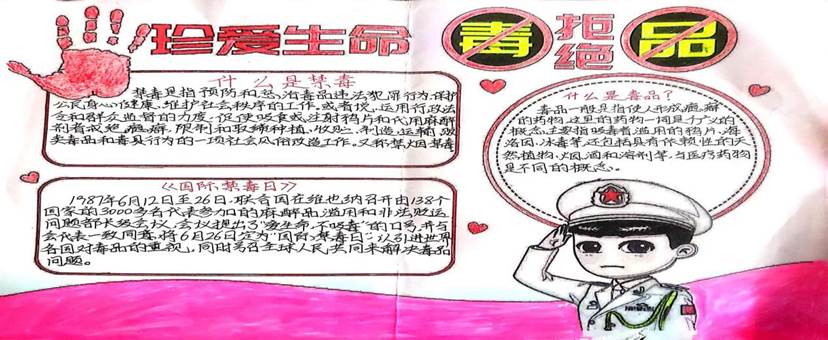 珍爱生命
拒绝毒品
什么是禁毒
禁毒是指预防和惩治毒品违法犯罪行为,保护
公民身心健康,维护社会秩序的工作,或者说,运用行政法
令和群众监督的力度,促使吸食或注射鸦片和代用麻醉
剂者戒绝瘾癖,限制和取缔种植,收贮,制造,运输,贩
卖毒品和毒具行为的一项社会风俗改造工作,又称禁烟禁毒
《国际禁毒日》
1987年6月12日至26日,联合国在维也纳召开由138个
国家的3000多名代表参加的麻醉品滥用和非法贩运
问题部长级会议,会议提出了“爱生命,不吸毒”的口号,并与
会代表一致同意,将6月26日定为“国际禁毒日”,以引进世界
各国对毒品的重视,同时号召全球人民,共同来解决毒品
问题。
什么是毒品?
毒品一般是指使人形成瘾癖
的药物,这里的药物一词是个广义的
概念,主要指吸毒者滥用的鸦片,海
洛因,冰毒等,还包括具有依赖性的天
然植物,烟,酒和溶剂等,与医疗药物
是不同的概念。